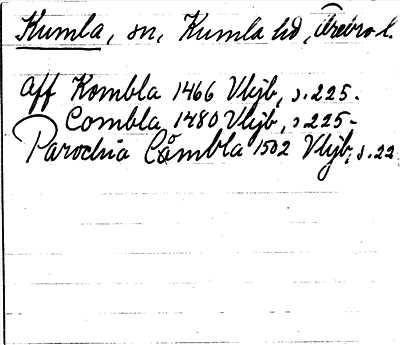 Kumla, sn, Kumla hd, Örebro l.
aff Kombla 1466 Vljb, s. 225.
Combla 1480 Vljb, s. 225-
Parochia Cåmbla 1502 Vljb, s. 22